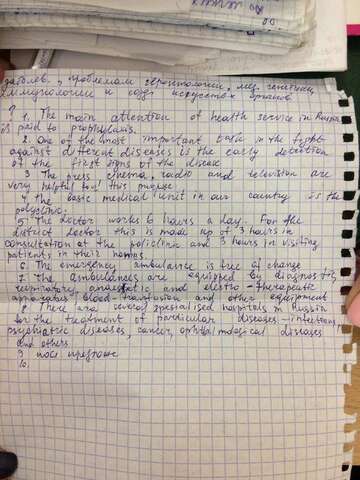 заболев., проблемам геронтологии, мед. генетики,
иммунологии и созд искуствен органов
? 1. The main attention of health service in Russia
is paid to prophylaxis.
2. One of the most important task in the fight
against different diseases is the early detection
of the first signs of the disease
3 The press cinema, radio and television are
very helpful for this purpose
4 the basic medical unit in our country is the
polyclinic.
5 The doctor works 6 hours a day. For the
district doctor this is made up of 3 hours in
consultation at the policlinic and 3 hours in visiting
patients in their homes.
6 The emergency ambulance is free of change
7. The ambulances are equipped by diagnostic,
respiratory, anaestetic and electro-therapeutic
apparatus blood-transfusion and other equipment
8. There are several spesialised hospitals in Russia
for the treatment of particular diseases - infections,
psychiatric diseases, cancer, ophtalmological diseases
and others
9
10.